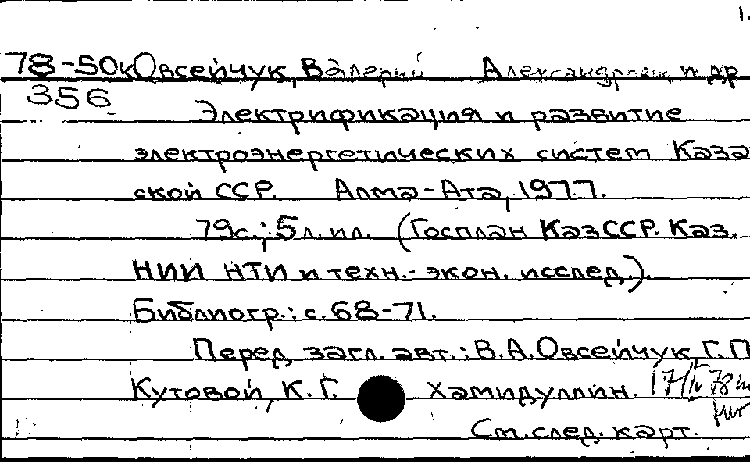 1.
78-50к Овсейчук, Валерий Александрович и др
356
Электрификация и развитие
электроэнергетических систем Каза
ской ССР. Алма-Ата, 1977.
79с.; 5 л. ил. (Госплан КазССР. Каз.
НИИ НТИ и техн.-экон. исслед.).
Библиогр.: с. 68-71.
Перед загл. авт.: В.А.Овсейчук, Г.П
Кутовой, К.Г. Хамидуллин.
См. след. карт.